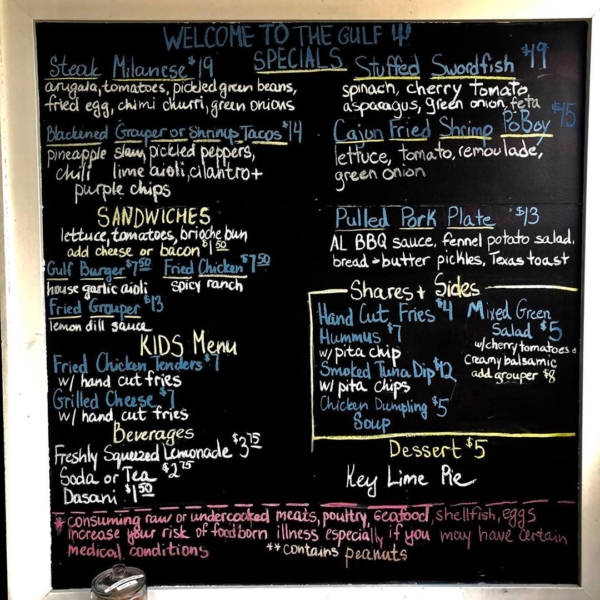 WELCOME TO THE GULF
SPECIALS
Steak Milanese $19
arugala, tomatoes, pickled green beans,
fried egg, chimi churri, green onions
Blackened Grouper or Shrimp Tacos $14
pineapple slaw, pickled peppers,
chili lime aioli, cilantro +
purple chips
Stuffed Swordfish $19
spinach, cherry tomato,
asparagus, green onion, feta
Cajun Fried Shrimp PoBoy $15
lettuce, tomato, remoulade,
green onion
SANDWICHES
lettuce, tomatoes, brioche bun
add cheese or bacon $1.50
Gulf Burger $7.50 Fried Chicken $7.50
house garlic aioli spicy ranch
Fried Grouper $13
lemon dill sauce
Pulled Pork Plate $13
AL BBQ sauce, fennel potato salad,
bread + butter pickles, Texas toast
KIDS Menu
Fried Chicken Tenders $7
w/ hand cut fries
Grilled Cheese $7
w/ hand cut fries
Beverages
Freshly Squeezed Lemonade $3.75
Soda or Tea $2.75
Dasani $1.50
Shares + Sides
Hand Cut Fries $4
Hummus $7
w/ pita chip
Smoked Tuna Dip $12
w/ pita chips
Chicken Dumpling $5
Soup
Mixed Green
Salad $5
w/ cherry tomatoes
creamy balsamic
add grouper $8
Dessert $5
Key Lime Pie
* consuming raw or undercooked meats, poultry, seafood, shellfish, eggs
increase your risk of foodborn illness especially if you may have certain
medical conditions ** contains peanuts